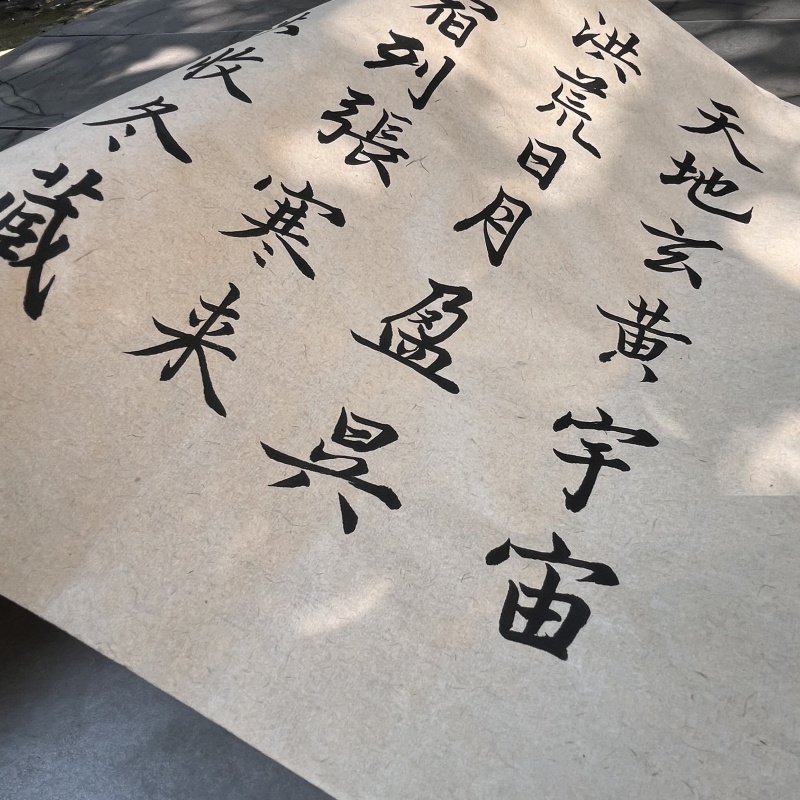 天地玄黄宇宙
洪荒日月盈昃
宿列張寒来
收冬藏